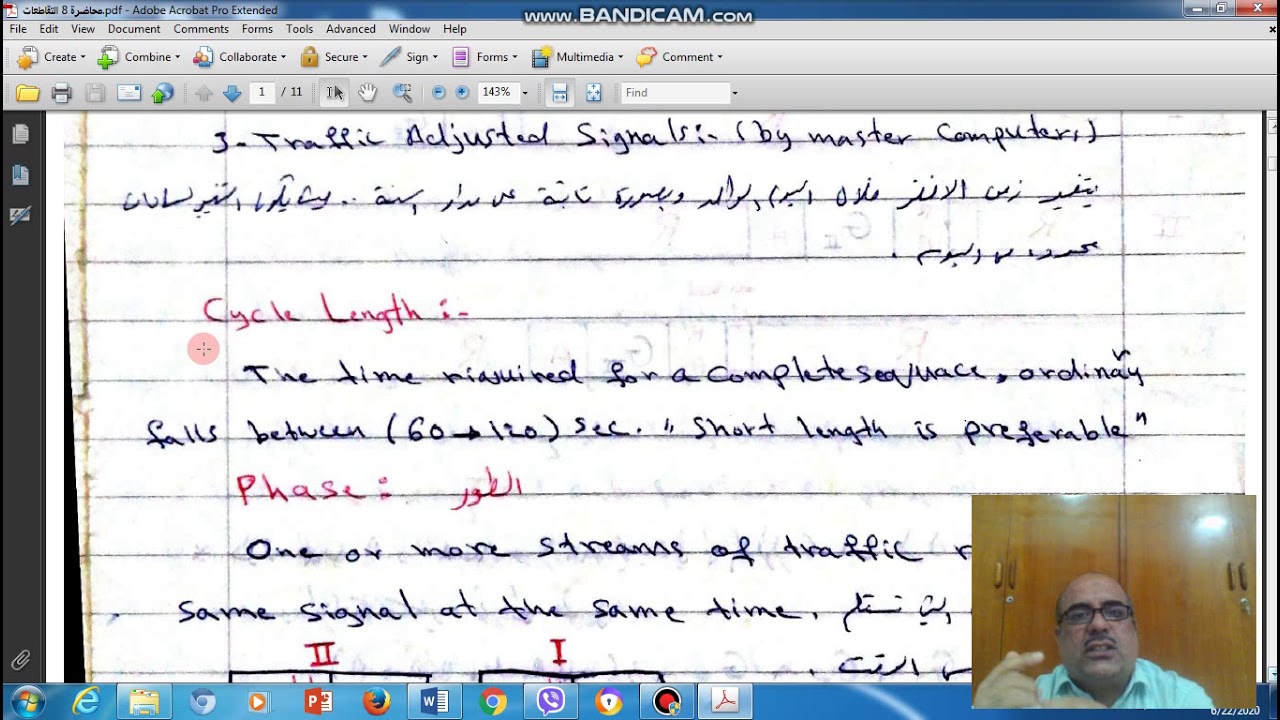 محاضرة 8 التقاطعات.pdf - Adobe Acrobat Pro Extended
www.BANDICAM.com
File Edit View Document Comments Forms Tools Advanced Window Help
Create Combine Collaborate Secure Sign Forms Multimedia Comment
1 / 11 143% Find
3- Traffic Adjusted Signals:- (by master Computers)
يتغير زمن
خلال اليوم الواحد وبصورة ثابتة على مدار السنة ..
Cycle Length :-
The time riquired for a complete
falls between (60 → 120) sec. " Short length is preferable"
Phase: الطور
One or more streams of traffic r
same signal at the same time.
II I
6/22/2020